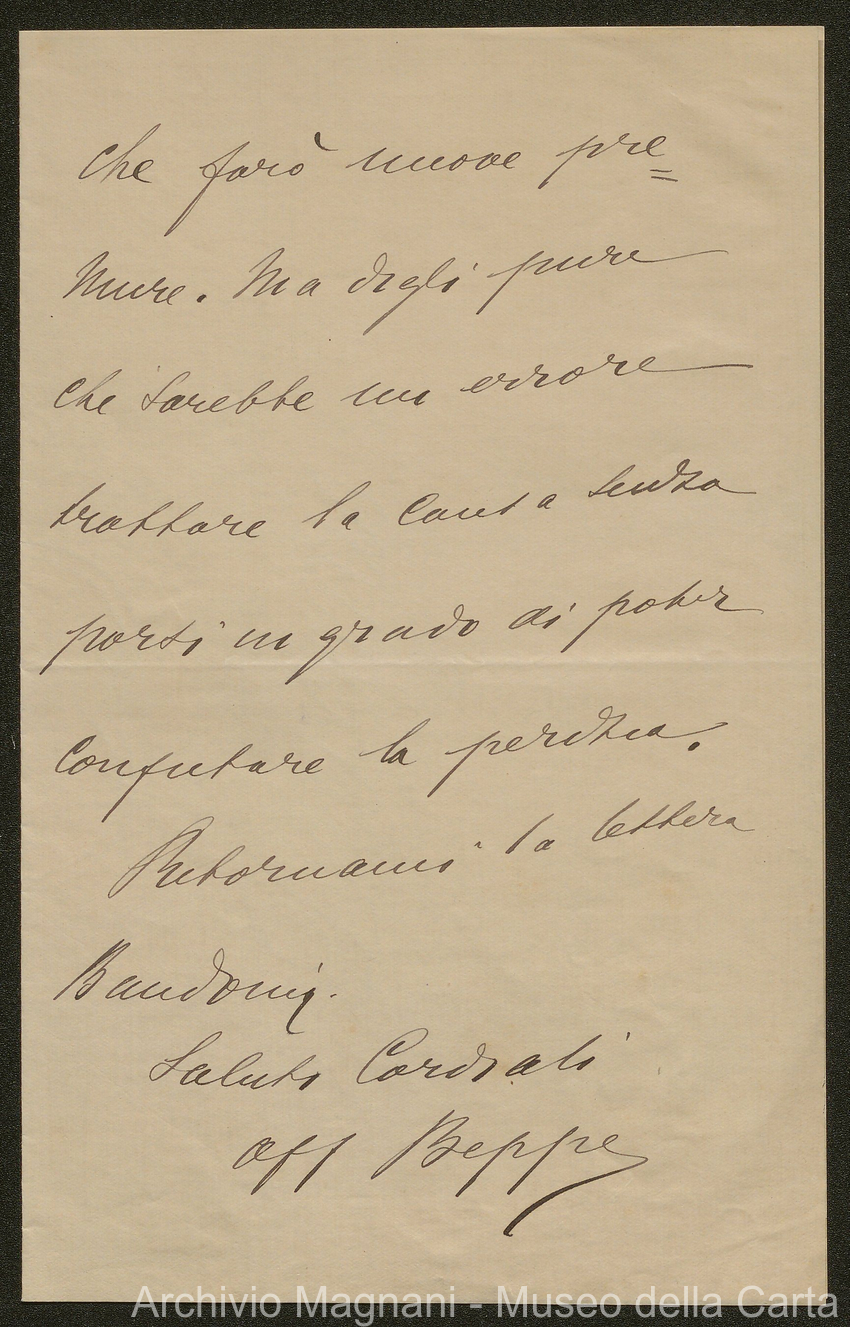 che farò nuove pre=
mure. Ma digli pure
che sarebbe un errore
trattare la causa senza
porsi in grado di poter
confutare la perizia.
Ritornami la lettera
Bandoni.
Saluti Cordiali
aff Beppe
Archivio Magnani - Museo della Carta